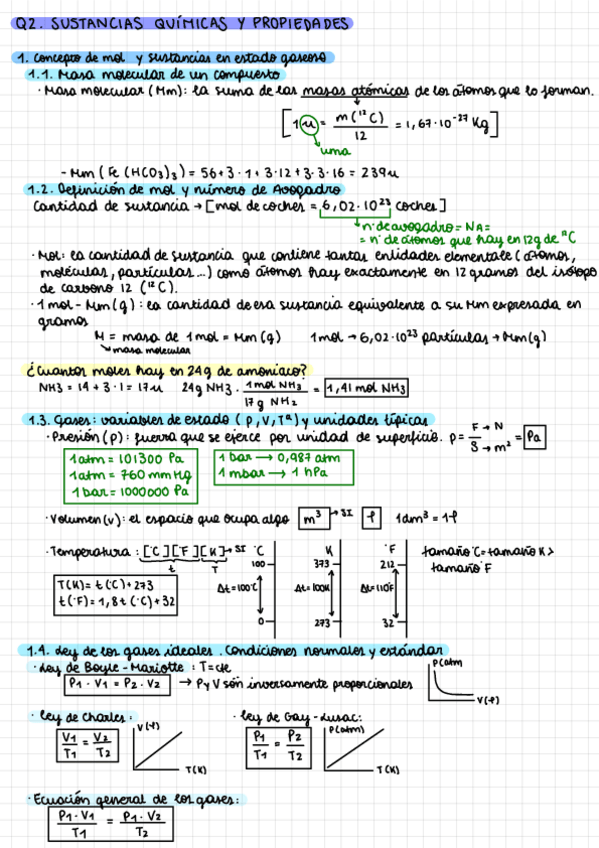 Q2. SUSTANCIAS QUÍMICAS Y PROPIEDADES
1. Concepto de mol y sustancias en estado gaseoso
1.1. Masa molecular de un compuesto
· Masa molecular (Mm): la suma de las masas atómicas de los átomos que lo forman.
[1u = m(¹²C)/12 = 1,67·10⁻²⁷ Kg]
uma
- Mm (Fe (HCO3)3) = 56+3·1+3·12+3·3·16 = 239u
1.2. Definición de mol y número de Avogadro
Cantidad de sustancia → [mol de coches = 6,02·10²³ coches]
n° de avogadro = NA =
= n° de átomos que hay en 12g de ¹²C
· Mol: la cantidad de sustancia que contiene tantas entidades elementales (átomos,
moléculas, partículas...) como átomos hay exactamente en 12 gramos del isótopo
de carbono 12 (¹²C).
· 1 mol - Mm (g): la cantidad de esa sustancia equivalente a su Mm expresada en
gramos
M = masa de 1 mol = Mm (g) 1 mol → 6,02·10²³ partículas → Mm (g)
masa molecular
¿Cuantos moles hay en 24g de amoniaco?
NH3 = 14 + 3·1 = 17u 24g NH3 · 1 mol NH3 / 17 g NH2 = 1,41 mol NH3
1.3. Gases: variables de estado (P, V, Tª) y unidades típicas
· Presión (P): fuerza que se ejerce por unidad de superficie. p = F → N / S → m² = Pa
1 atm = 101300 Pa
1 atm = 760 mm Hg
1 bar = 1000000 Pa
1 bar → 0,987 atm
1 mbar → 1 hPa
· Volumen (v): el espacio que ocupa algo m³ → SI l 1dm³ = 1l
· Temperatura: [°C] [°F] [K] → SI
t T
T(K) = t(°C) + 273
t(°F) = 1,8 t(°C) + 32
°C K °F
100 373 212
Δt = 100°C Δt = 100K Δt = 110°F
0 273 32
tamaño °C = tamaño K >
tamaño °F
1.4. Ley de los gases ideales. Condiciones normales y estándar
· Ley de Boyle - Mariotte: T = cte
P1 · V1 = P2 · V2 → P y V són inversamente proporcionales
P(atm
V(l)
· Ley de Charles:
V1/T1 = V2/T2
V(l)
T(K)
· Ley de Gay - Lusac:
P1/T1 = P2/T2
P(atm)
T(K)
· Ecuación general de los gases:
P1·V1/T1 = P2·V2/T2